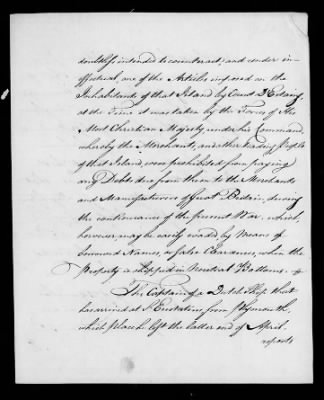 doubtless intended to counteract, and render in-
effectual, one of the Articles imposed on the
Inhabitants of that Island by Count D'Estaing,
at the Time it was taken by the Forces of His
Most Christian Majesty under his Command,
whereby the Merchants, and other trading People
of that Island, were prohibited from paying
any Debts due from them to the Merchants
and Manufacturers of Great Britain, during
the continuance of the present War, which,
however may be easily evaded by Means of
borrowed Names, or false Clearances, when the
Property is shipped in Neutral Bottoms.
The Captain of a Dutch Ship that
has arrived at St. Eustatius from Plymouth,
which Place he left the latter end of April,
reports